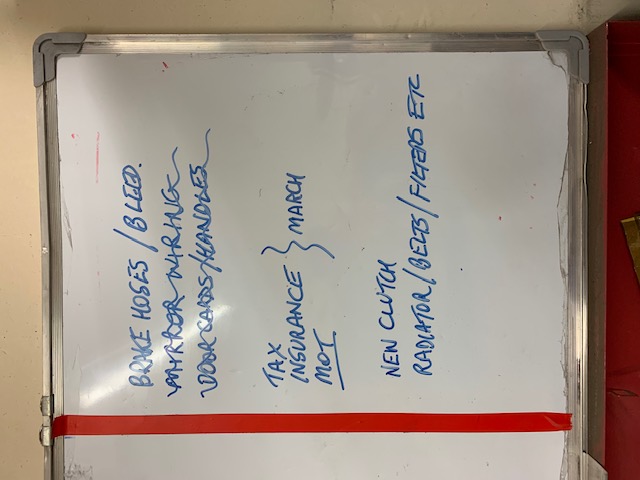 BRAKE HOSES / BLEED.
MIRROR WIRING
DOOR CARDS/HANDLES
TAX
INSURANCE } MARCH
MOT
NEW CLUTCH
RADIATOR/BELTS/FILTERS ETC